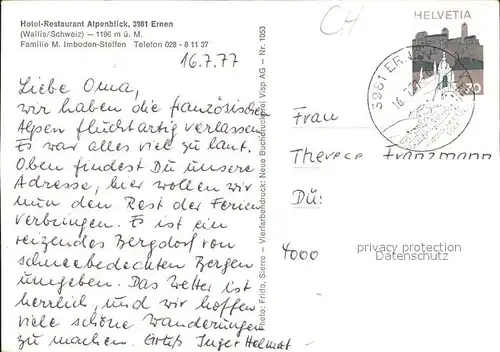 Hotel-Restaurant Alpenblick, 3981 Ernen
(Wallis/Schweiz) — 1196 m ü. M.
Familie M. Imboden-Steffen Telefon 028 - 8 11 37
16.7.77
Liebe Oma,
wir haben die französischen
Alpen fluchtartig verlassen.
Es war alles viel zu laut.
Oben findest Du unsere
Adresse, hier wollen wir
nun den Rest der Ferien
verbringen. Es ist ein
reizendes Bergdorf von
schneebedeckten Bergen
umgeben. Das Wetter ist
herrlich, und wir hoffen
viele schöne Wanderungen
zu machen. Gruß Inger Helmut
Photo: Frido, Sierre — Vierfarbendruck: Neue Buchdruckerei Visp AG — Nr. 1053
CH
HELVETIA
70
3981 ERNEN
Frau
Therese Franzmann
Dü
4000
privacy protection
Datenschutz